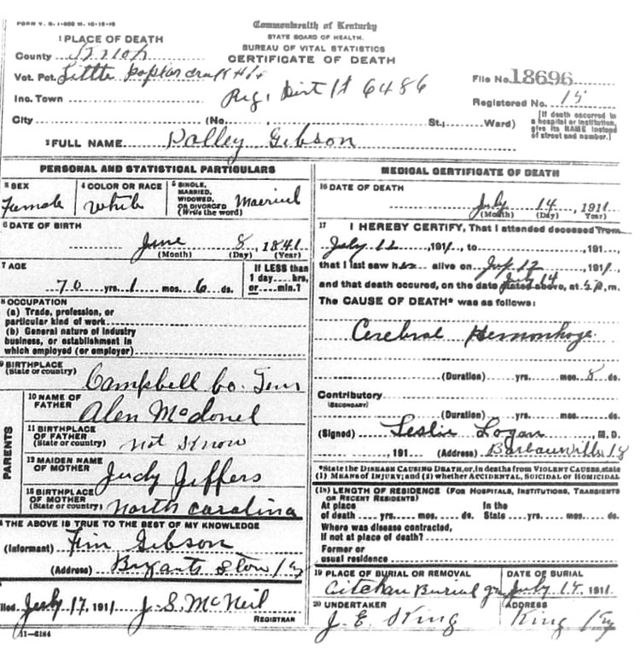 FORM V. S. 1-
Commonwealth of Kentucky
STATE BOARD OF HEALTH.
BUREAU OF VITAL STATISTICS
CERTIFICATE OF DEATH
1 PLACE OF DEATH
County
Vot. Pct. Little poplar
Inc. Town
Reg. Dist 6486
File No. 18696
Registered No. 15
City (No. St.; Ward)
[If death occurred in
a hospital or institution,
give its NAME instead
of street and number.]
2 FULL NAME Polley Gibson
PERSONAL AND STATISTICAL PARTICULARS
3 SEX
Female
4 COLOR OR RACE
White
5 SINGLE,
MARRIED,
WIDOWED,
OR DIVORCED
(Write the word)
Married
6 DATE OF BIRTH
June 8, 1841
(Month) (Day) (Year)
7 AGE
70 yrs. 1 mos. 6 ds.
If LESS than
1 day.... hrs.
or.... min.?
8 OCCUPATION
(a) Trade, profession, or
particular kind of work
(b) General nature of industry
business, or establishment in
which employed (or employer)
9 BIRTHPLACE
(State or country)
Campbell Co. Tenn
PARENTS
10 NAME OF
FATHER
Alen McDonel
11 BIRTHPLACE
OF FATHER
(State or country)
not Know
12 MAIDEN NAME
OF MOTHER
Judy Jeffers
13 BIRTHPLACE
OF MOTHER
(State or country)
North Carolina
THE ABOVE IS TRUE TO THE BEST OF MY KNOWLEDGE
(Informant) Gibson
(Address) Bryants Store Ky
Filed July 17, 1911 J. S. McNeil
REGISTRAR
11-6184
MEDICAL CERTIFICATE OF DEATH
16 DATE OF DEATH
July 14, 1911
(Month) (Day) (Year)
17 I HEREBY CERTIFY, That I attended deceased from
July 12, 1911, to , 191
that I last saw her alive on July 12, 1911,
and that death occured, on the date stated above, at m.
July 14
The CAUSE OF DEATH* was as follows:
Cerebral Hemorrhage
(Duration) yrs. mos. 8 ds.
Contributory
(SECONDARY)
(Duration) yrs. mos. ds.
(Signed) Leslie Logan M. D.
, 191 (Address) Barbourville
*State the DISEASE CAUSING DEATH, or, in deaths from VIOLENT CAUSES, state
(1) MEANS OF INJURY; and (2) whether ACCIDENTAL, SUICIDAL or HOMICIDAL
18 LENGTH OF RESIDENCE (FOR HOSPITALS, INSTITUTIONS, TRANSIENTS
OR RECENT RESIDENTS)
At place
of death yrs. mos. ds.
In the
State yrs. mos. ds.
Where was disease contracted,
if not at place of death?
Former or
usual residence
19 PLACE OF BURIAL OR REMOVAL
Burial
DATE OF BURIAL
July 15, 1911
20 UNDERTAKER
J. E. King
ADDRESS
King Ky